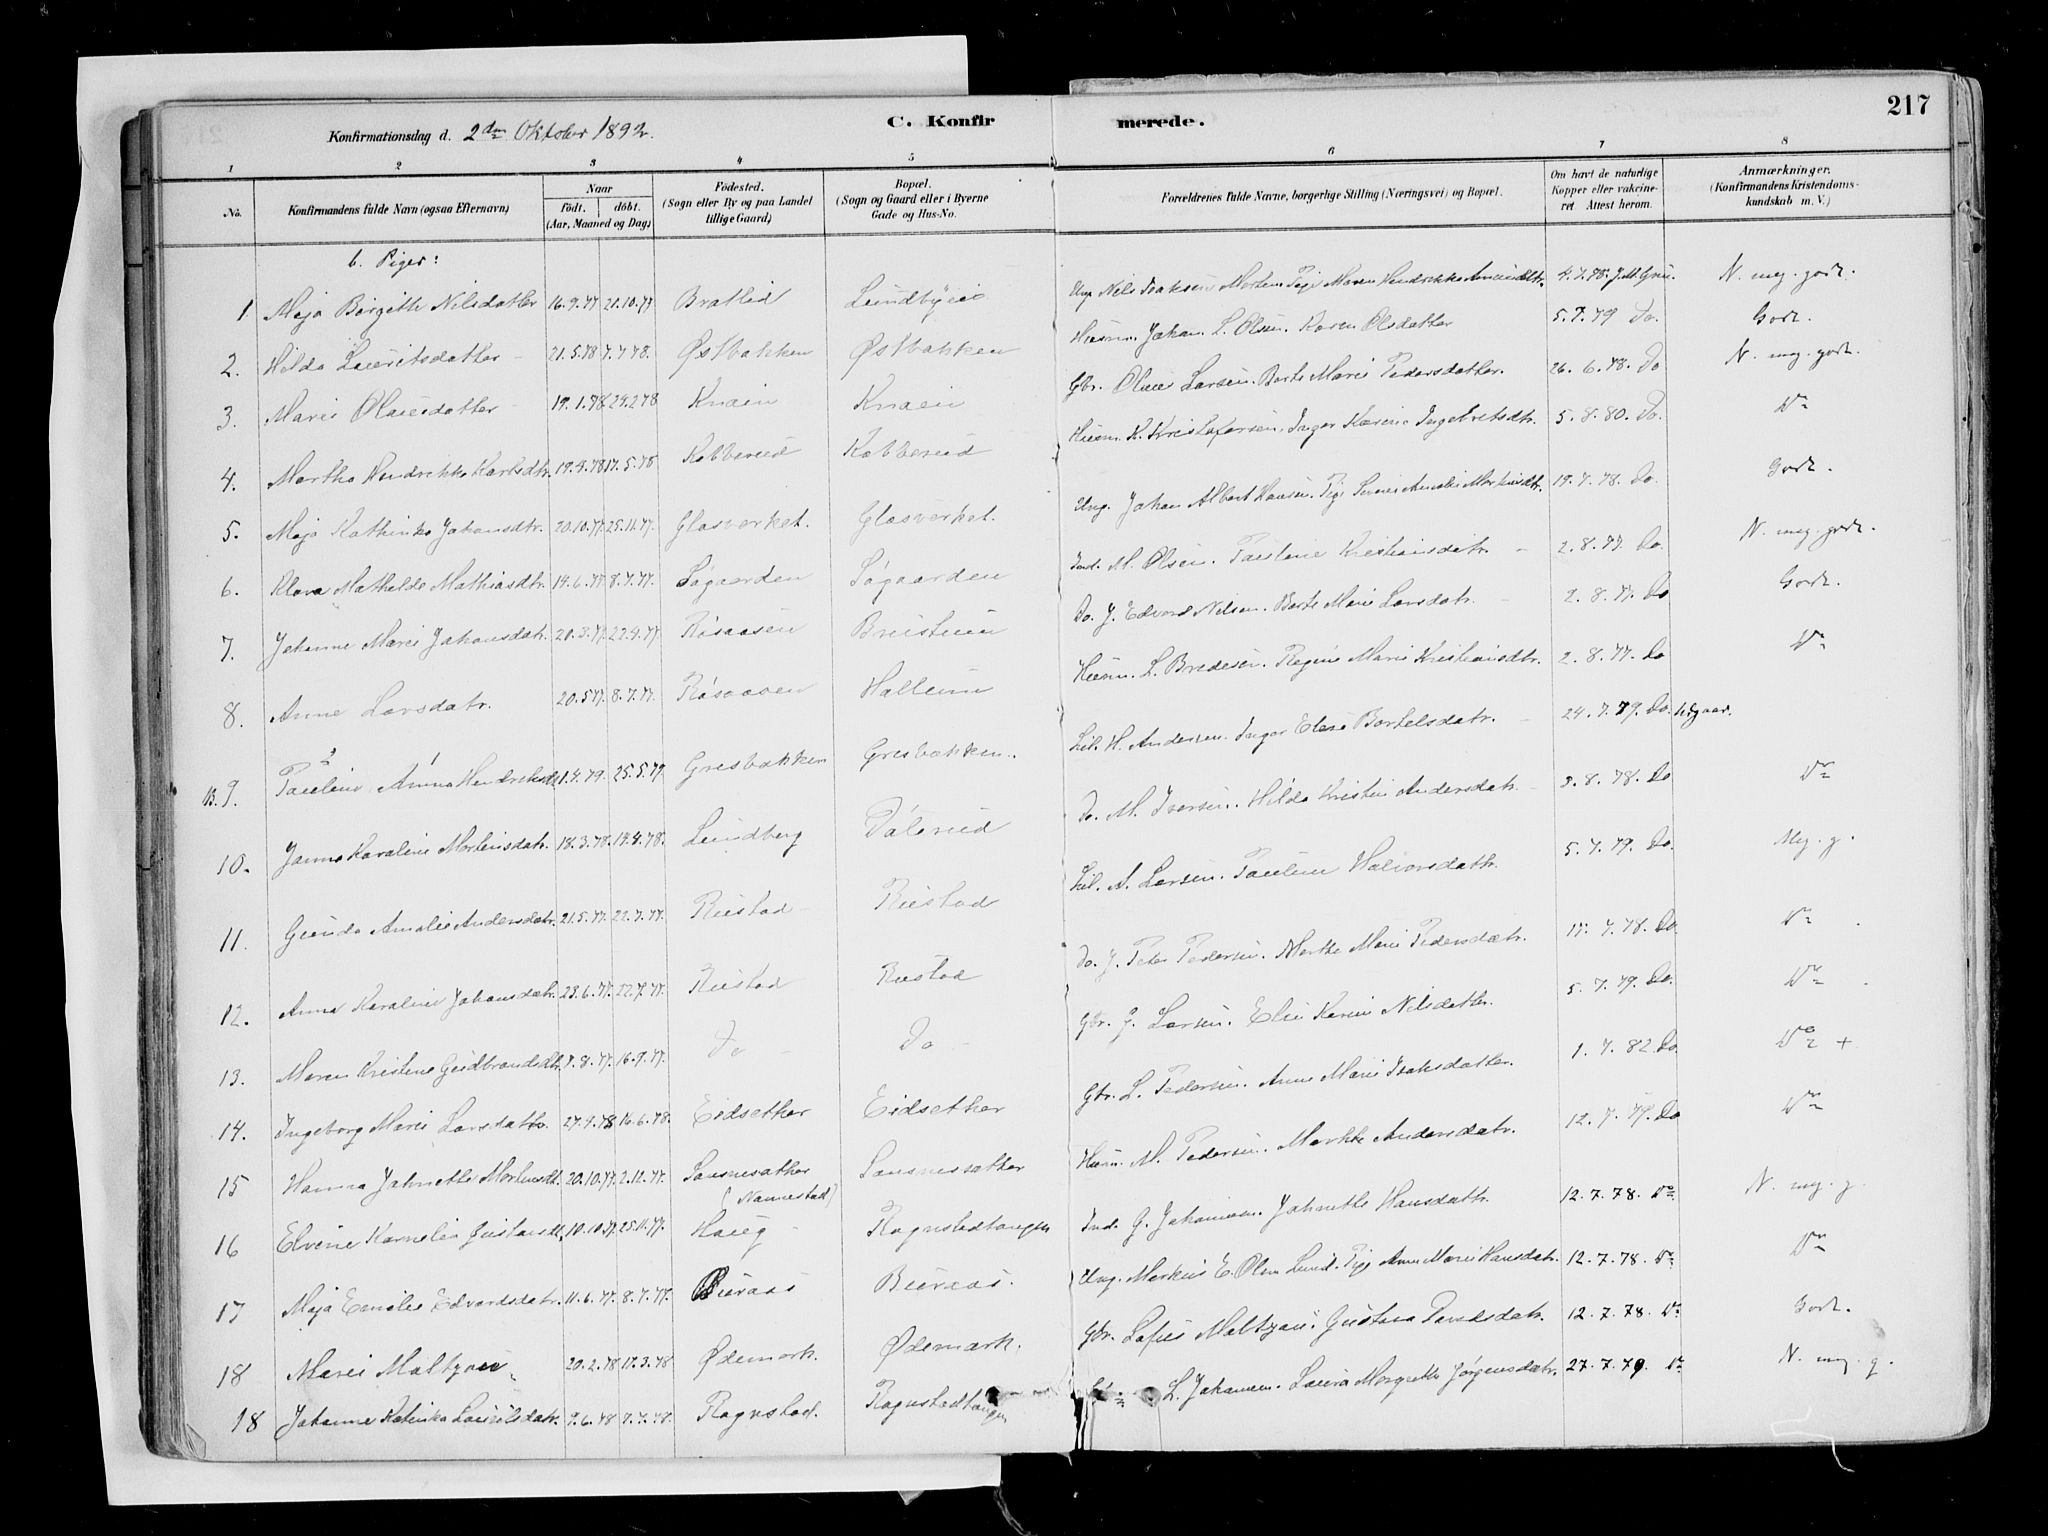 217
C. Konfirmerede.
Konfirmationsdag d. 2den Oktober 1892.
1 2 3 4 5 6 7 8
No. Konfirmandens fulde Navn (ogsaa Efternavn) Naar Født. døbt. (Aar, Maaned og Dag) Fødested. (Sogn eller By og paa Landet tillige Gaard) Bopæl. (Sogn og Gaard eller i Byerne Gade og Hus-No. Forældrenes fulde Navne, borgerlige Stilling (Næringsvei) og Bopæl. Om havt de naturlige Kopper eller vakcineret. Attest herom. Anmærkninger. (Konfirmandens Kristendomskundskab m. V.)
b. Piger:
1. Maja Birgitte Nilsdatter 16.9.77 21.10.77 Bratlid Lundbyeie Ung. Nils Isaksen Pige Maren Hendrikke 4.7.78. N. meg. godt.
2. Hilda Lauritsdatter 21.5.78 7.7.78. Østbakken Østbakken Husm. Johan L. Olsen. Karen Olsdatter 5.7.79 Do. Godt.
3. Marie Olausdatter 19.1.78 24.2.78 Knaen Knaen Gbr. Olaus Larsen. Berte Marie Pedersdatter. 26.6.78. Do N. meg. godt.
4. Marthe Hendrikke Karlsdtr. 19.4.78 17.5.78 Kobberud Kobberud Husm. K. Kristofersen. Inger Karine Ingebretsdtr. 5.8.80. Do. Do
5. Maja Kathinka Johansdtr. 20.10.77 25.11.77. Glasverket. Glasverket. Ung. Johan Albert Hansen. Pige 19.7.78. Do. Godt.
6. Klara Mathilde Mathiasdtr. 19.6.77 8.7.77. Søgaarden Søgaarden Ind. M. Olsen. Pauline Kristiansdatr. 2.8.77. Do. N. meg. godt.
7. Johanne Marie Johansdatr. 20.3.77. 22.4.77 Røsaasen Do. J. Edvard Nilsen. Berte Marie Larsdatr. 2.8.77. Do Godt.
8. Anne Larsdatr. 20.5.77. 8.7.77. Røsaasen Hallum Husm. L. Bredesen. Regine Marie Kristiansdtr. 2.8.77. Do Do
B. 9. Pauline Anna 1.4.79. 25.5.79 Gresbakken Gresbakken. H. Andersen. Inger Elise Bertelsdatr. 24.7.79. Do. Udgaar.
10. Janna Karoline Mortensdatr. 18.3.78. 19.4.78. Lundberg Dølerud Do. M. Iversen. Hilda Kristine Andersdatr. 3.8.78. Do Do
11. Gunda Amalie Andersdatr. 21.5.77. 22.7.77. Rustad Rustad A. Larsen. Pauline Halvorsdatr. 5.7.79. Do. Meg. g.
12. Anna Karoline Johansdatr. 23.6.77. 22.7.77. Rustad Rustad Do. J. Peter Pedersen. Marthe Marie Pedersdatr. 17.7.78. Do Do
13. Maren Kristine Gudbrandsdtr. 7.8.77. 16.9.77. Do Do Gbr. G. Larsen. Elise Karine Nilsdatter. 5.7.79. Do. Do
14. Ingeborg Marie Larsdatter. 27.4.78 16.6.78. Eidsether Eidsether Gbr. L. Pedersen. Anne Marie Isaksdatter. 1.7.82. Do Do +
15 Hanna Jahnette Mortensdt. 20.10.77. 2.12.77. Sansnesæther (Nannestad) Sansnesæther Husm. M. Pedersen. Marthe Andersdatr. 12.7.79. Do Do
16 Elvine Kornelia Gustavsdt. 10.10.77. 25.11.77. Haug Ragnstadtangen Ind. G. Johansen. Jahnette Hansdatr. 12.7.78. Do N. meg. g.
17 Maja Emilie Edvardsdatr. 11.6.77. 8.7.77. Buraas Buraas. Ung. Markus E. Olsen Lund. Pige Anne Marie Hansdatr. 12.7.78. Do Do
18 Marie Maltzau 20.2.78 17.3.78 Ødemark. Ødemark. Gbr. Sofus Maltzau. Gustava 12.7.78. Do Godt.
18 Johanne Katinka Lauritsdatr. 9.6.78 7.7.78. Ragnstad. Ragnstadtangen L. Johansen. Laura Margrethe Jørgensdatr. 27.7.79. Do N. meg. g.